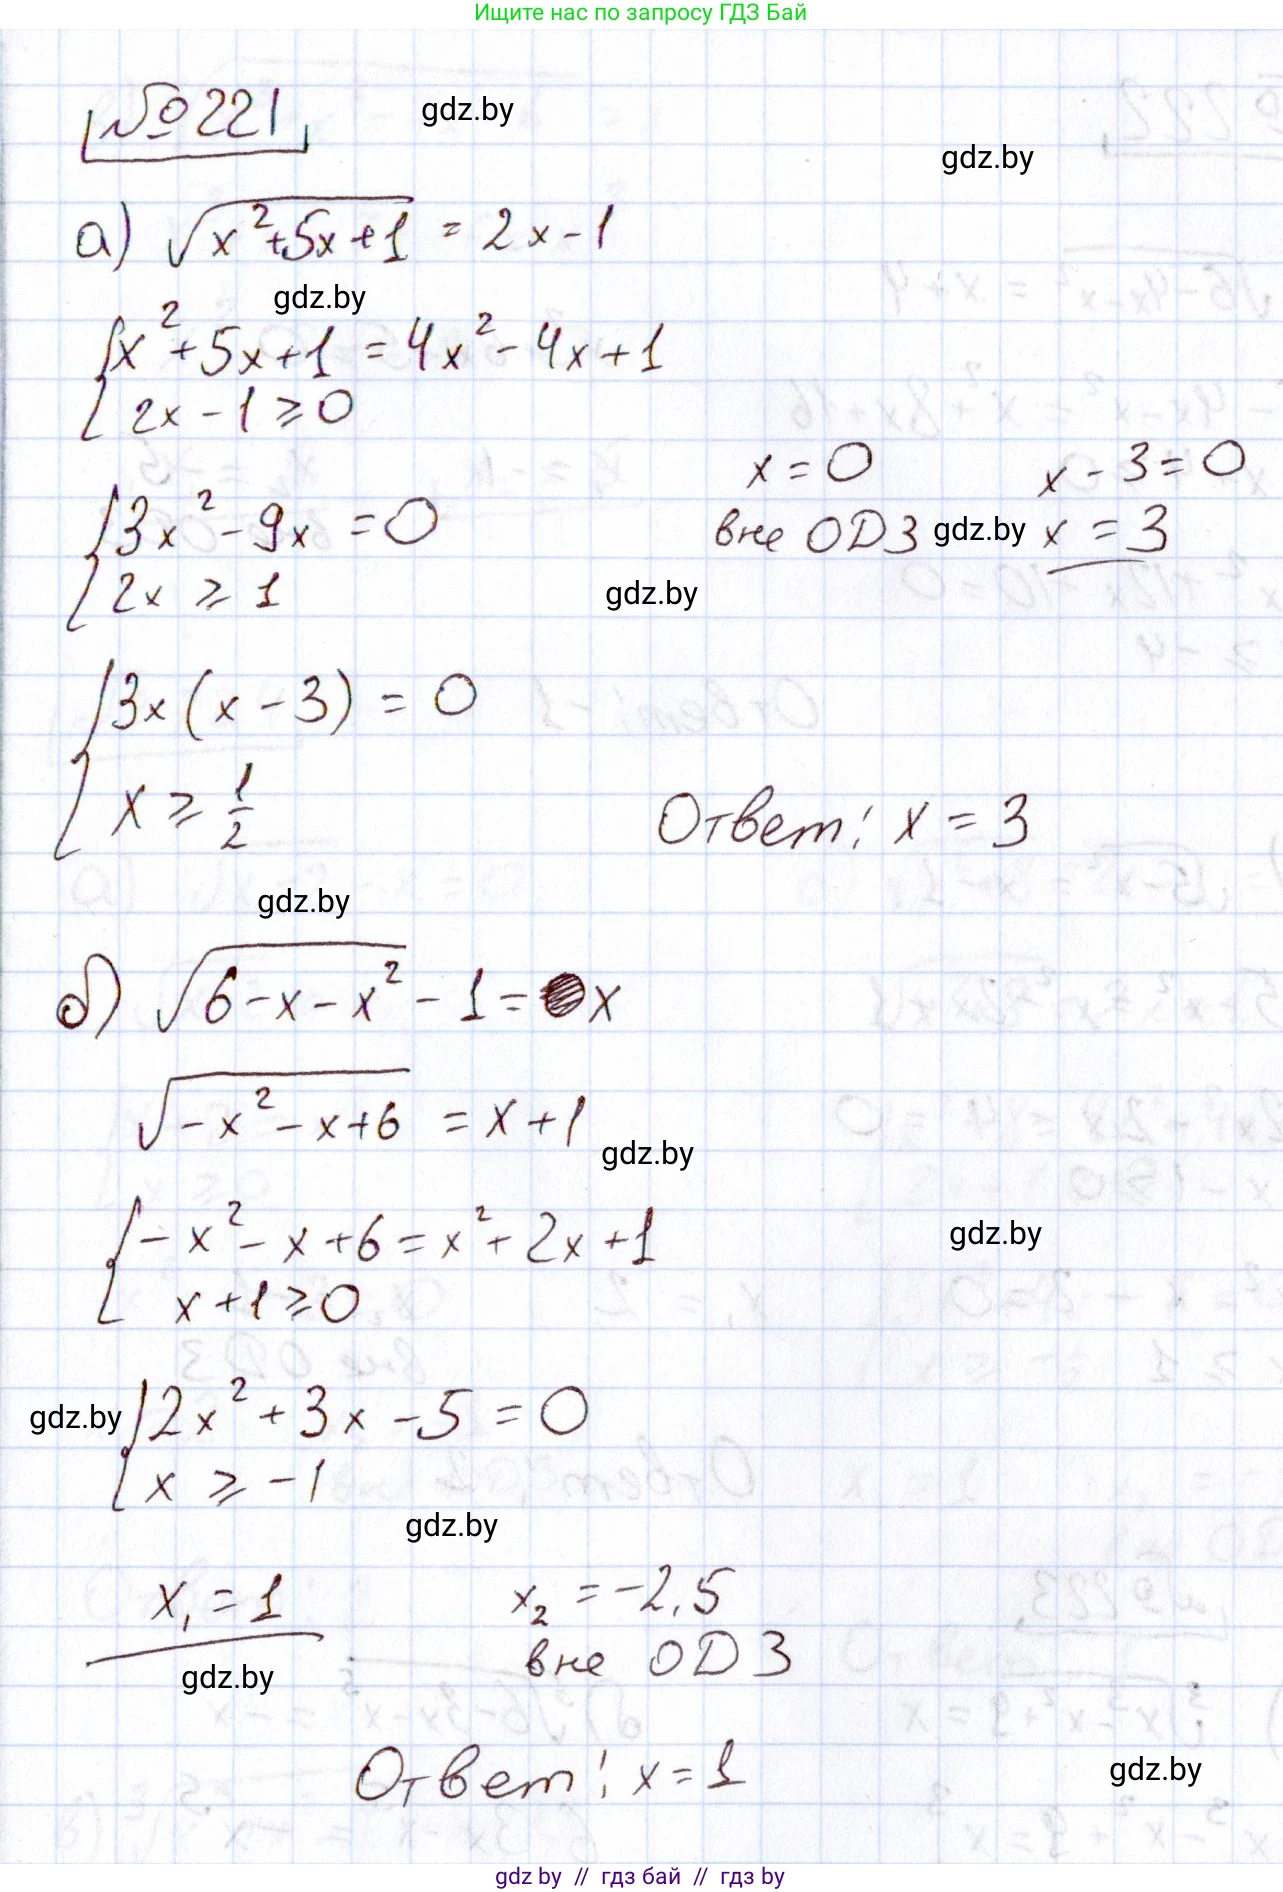 Ищите нас по запросу ГДЗ Бай
№221
gdz.by
gdz.by
а) √(x²+5x+1) = 2x-1
gdz.by
{x²+5x+1 = 4x²-4x+1
{2x-1 ≥ 0
x = 0
x-3 = 0
{3x²-9x = 0
вне ОДЗ
gdz.by
x = 3
{2x ≥ 1
gdz.by
{3x(x-3) = 0
{x ≥ 1/2
Ответ: x = 3
gdz.by
б) √(6-x-x²) - 1 = x
√(-x²-x+6) = x+1
gdz.by
{-x²-x+6 = x²+2x+1
gdz.by
{x+1 ≥ 0
gdz.by
{2x²+3x-5 = 0
{x ≥ -1
gdz.by
x₁ = 1
x₂ = -2,5
gdz.by
вне ОДЗ
Ответ: x = 1
gdz.by
gdz by // гдз бай // гдз by